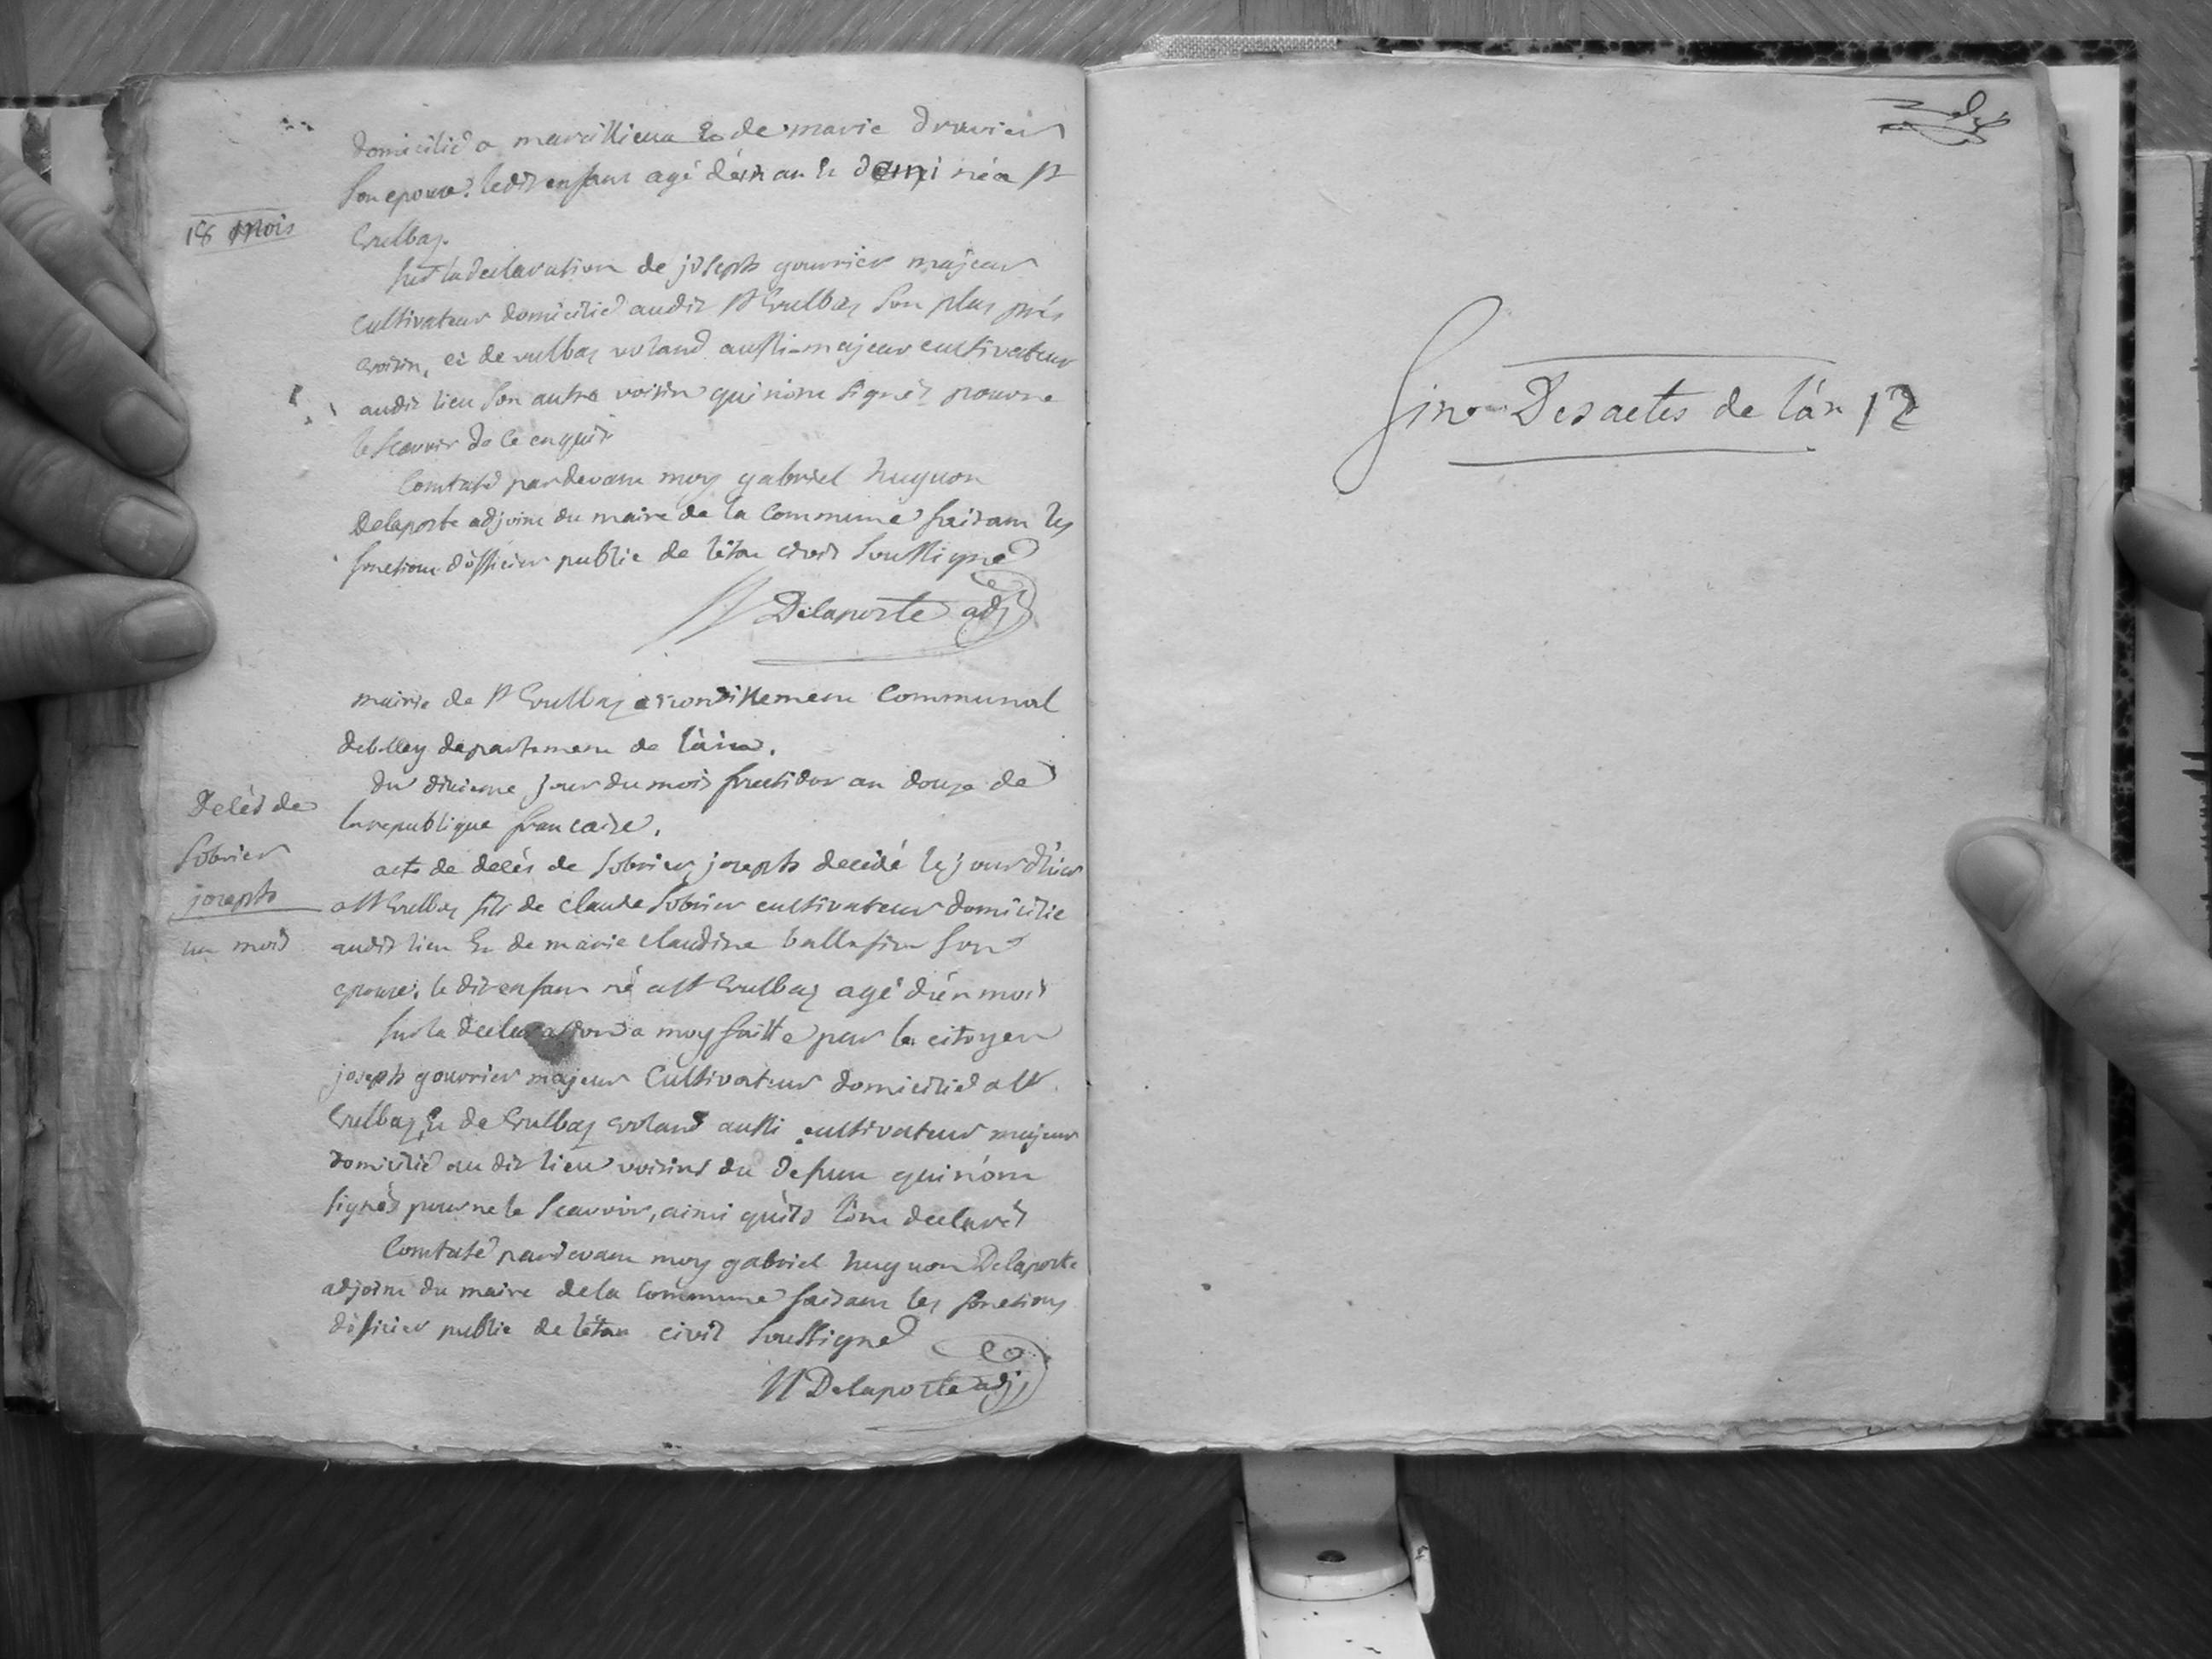 domicilié a marcillieux & de marie druvier
son epouse. ledit enfant agé d'éun an & demi né a st
18 mois
Vulbaz.
sur la declaration de joseph gourrier majeur
cultivateur domicilié audit st Vulbaz son plus prés
voisin, et de vulbaz voland aussi majeur cultivateur
audit lieu son autre voisin qui n'ont signés pour ne
le scavoir de ce enquis
Constaté pardevant moy gabriel huguon
Delaporte adjoint du maire de la Commune faisant les
fonctions d'officier public de l'état civil soussigné
Delaporte adj
mairie de st Vulbaz arrondissement Communal
de belley departement de l'ain.
du dixieme jour du mois fructidor an douze de
la republique francaise.
Decés de
sobrier
joseph
un mois
acte de decés de sobrier joseph decédé le jour d'hier
a st Vulbaz fils de claude sobrier cultivateur domicilié
audit lieu & de marie claudine son
epouse. le dit enfant né a st Vulbaz agé d'én mois
sur la declaration a moy faitte par le citoyen
joseph gourrier majeur Cultivateur domicilié a st
Vulbaz, & de Vulbaz voland aussi cultivateur majeur
domicilié au dit lieu voisins du defunt qui n'ont
signés pour ne le scavoir, ainsi qu'ils l'ont declarés
Constaté pardevant moy gabriel huguon Delaporte
adjoint du maire de la Commune faisant les fonctions
d'officier public de l'état civil soussigné
H Delaporte adj
fin Des actes de l'án 12